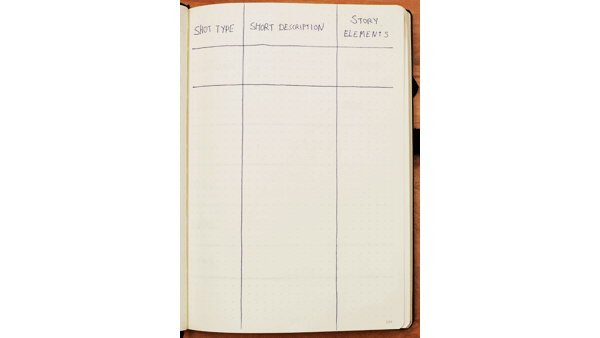 SHOT TYPE
SHORT DESCRIPTION
STORY
ELEMENTS